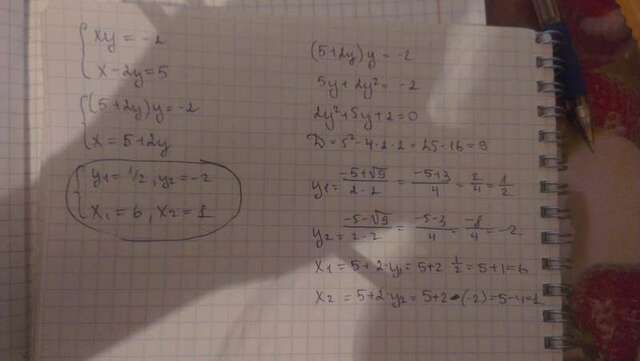 xy = -2
x - 2y = 5
(5+2y)y = -2
x = 5+2y
y1 = 1/2, y2 = -2
x1 = 6, x2 = 1
(5+2y)y = -2
5y + 2y² = -2
2y² + 5y + 2 = 0
D = 5² - 4·2·2 = 25 - 16 = 9
y1 = (-5+√9)/(2·2) = (-5+3)/4 = 2/4 = 1/2
y2 = (-5-√9)/(2·2) = (-5-3)/4 = -8/4 = -2
x1 = 5 + 2·y1 = 5+2 1/2 = 5+1 = 6
x2 = 5+2·y2 = 5+2·(-2) = 5-4 = 1